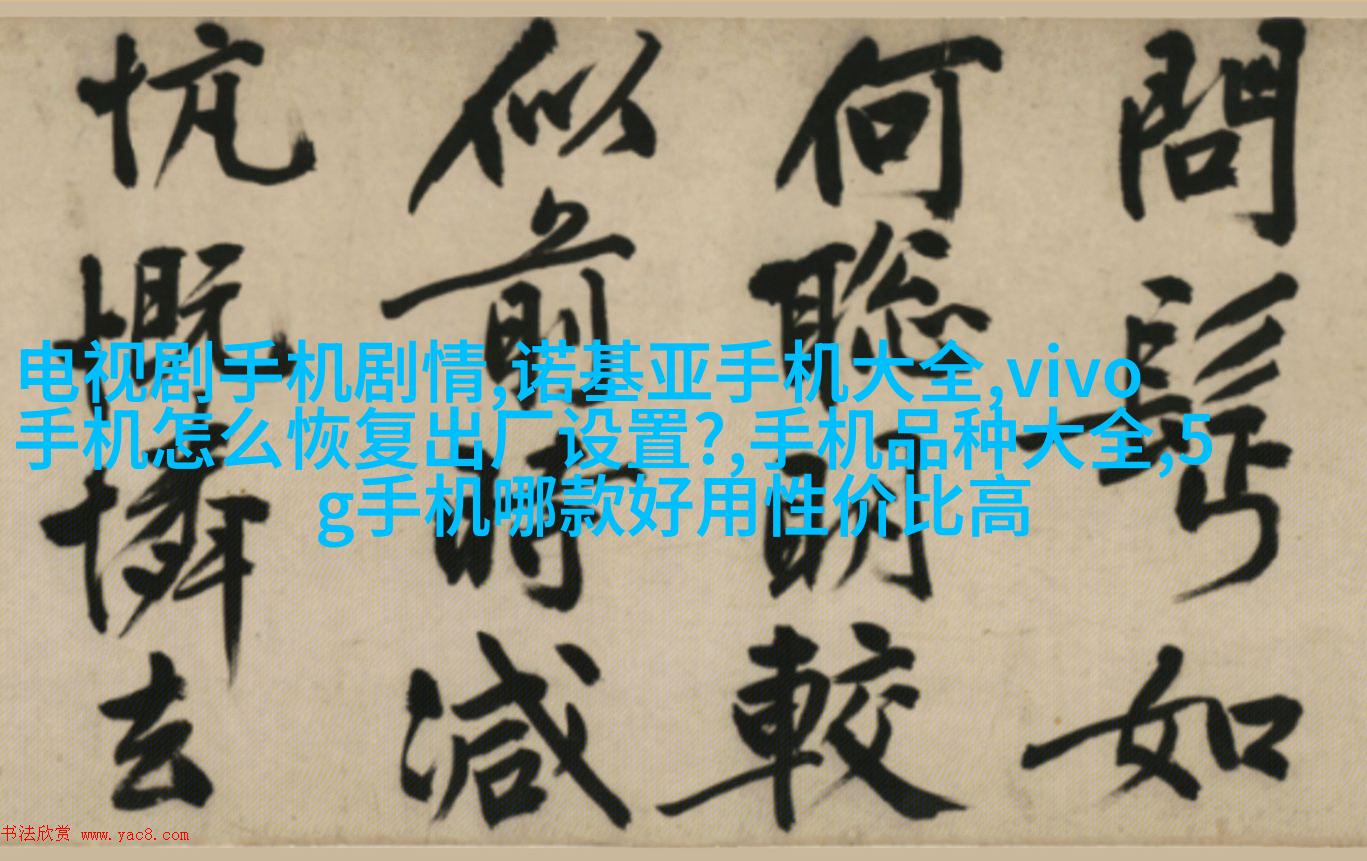 問如
何聡明較
似前時減
忼慨憐去
电视剧手机剧情,诺基亚手机大全,vivo
手机怎么恢复出厂设置?,手机品种大全,5
g手机哪款好用性价比高
书法欣赏 www.yac8.com